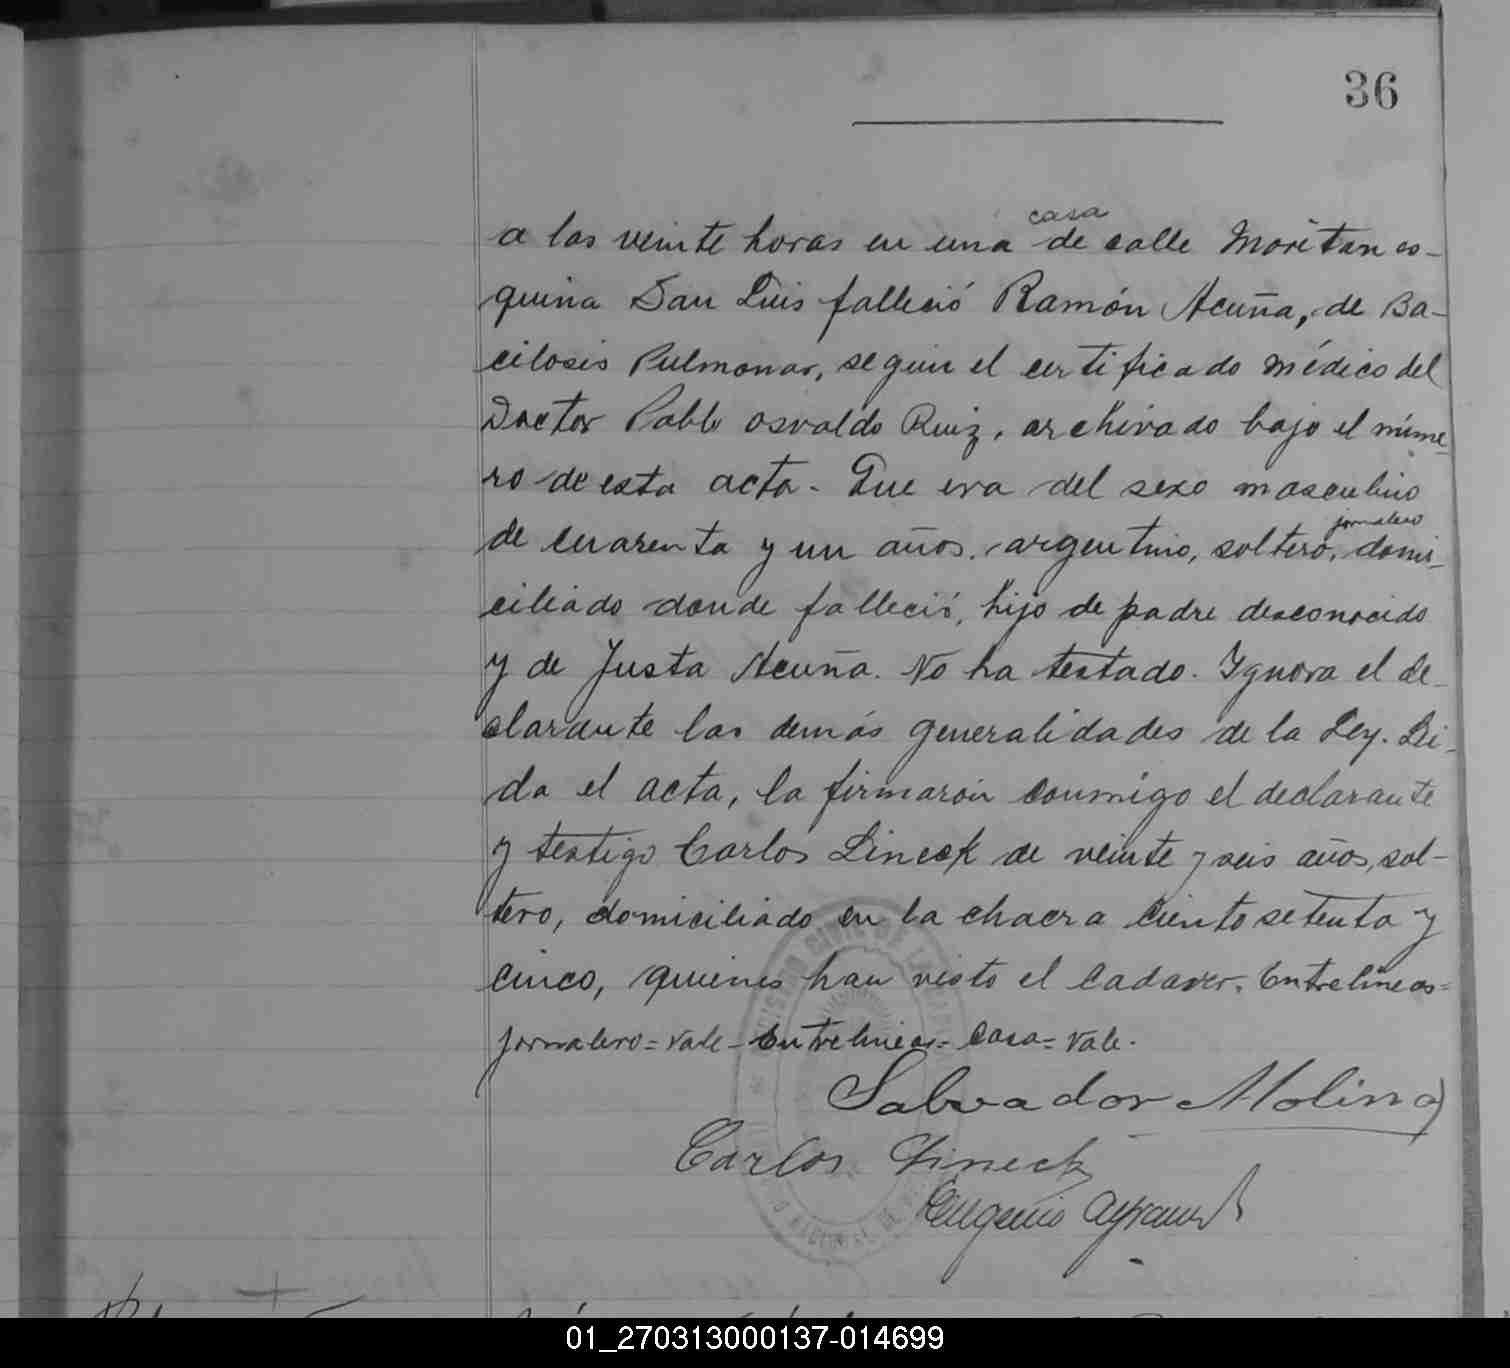 36
a las veinte horas en una casa de calle Moritan es-
quina San Luis falleció Ramón Acuña, de Ba-
cilosis Pulmonar, según el certificado médico del
Doctor Pablo Osvaldo Ruiz, archivado bajo el núme-
ro de esta acta. Que era del sexo masculino
de cuarenta y un años, argentino, soltero, jornalero domi-
ciliado donde falleció, hijo de padre desconocido
y de Justa Acuña. No ha testado. Ignora el de-
clarante las demás generalidades de la Ley. Lei-
da el acta, la firmaron conmigo el declarante
y testigo Carlos Lineck de veinte y seis años, sol-
tero, domiciliado en la chacra ciento setenta y
cinco, quienes han visto el cadaver. Entrelineas=
jornalero=vale-Entrelineas=casa=vale.
Salvador Molina
Carlos Lineck
Eugenio
01_270313000137-014699